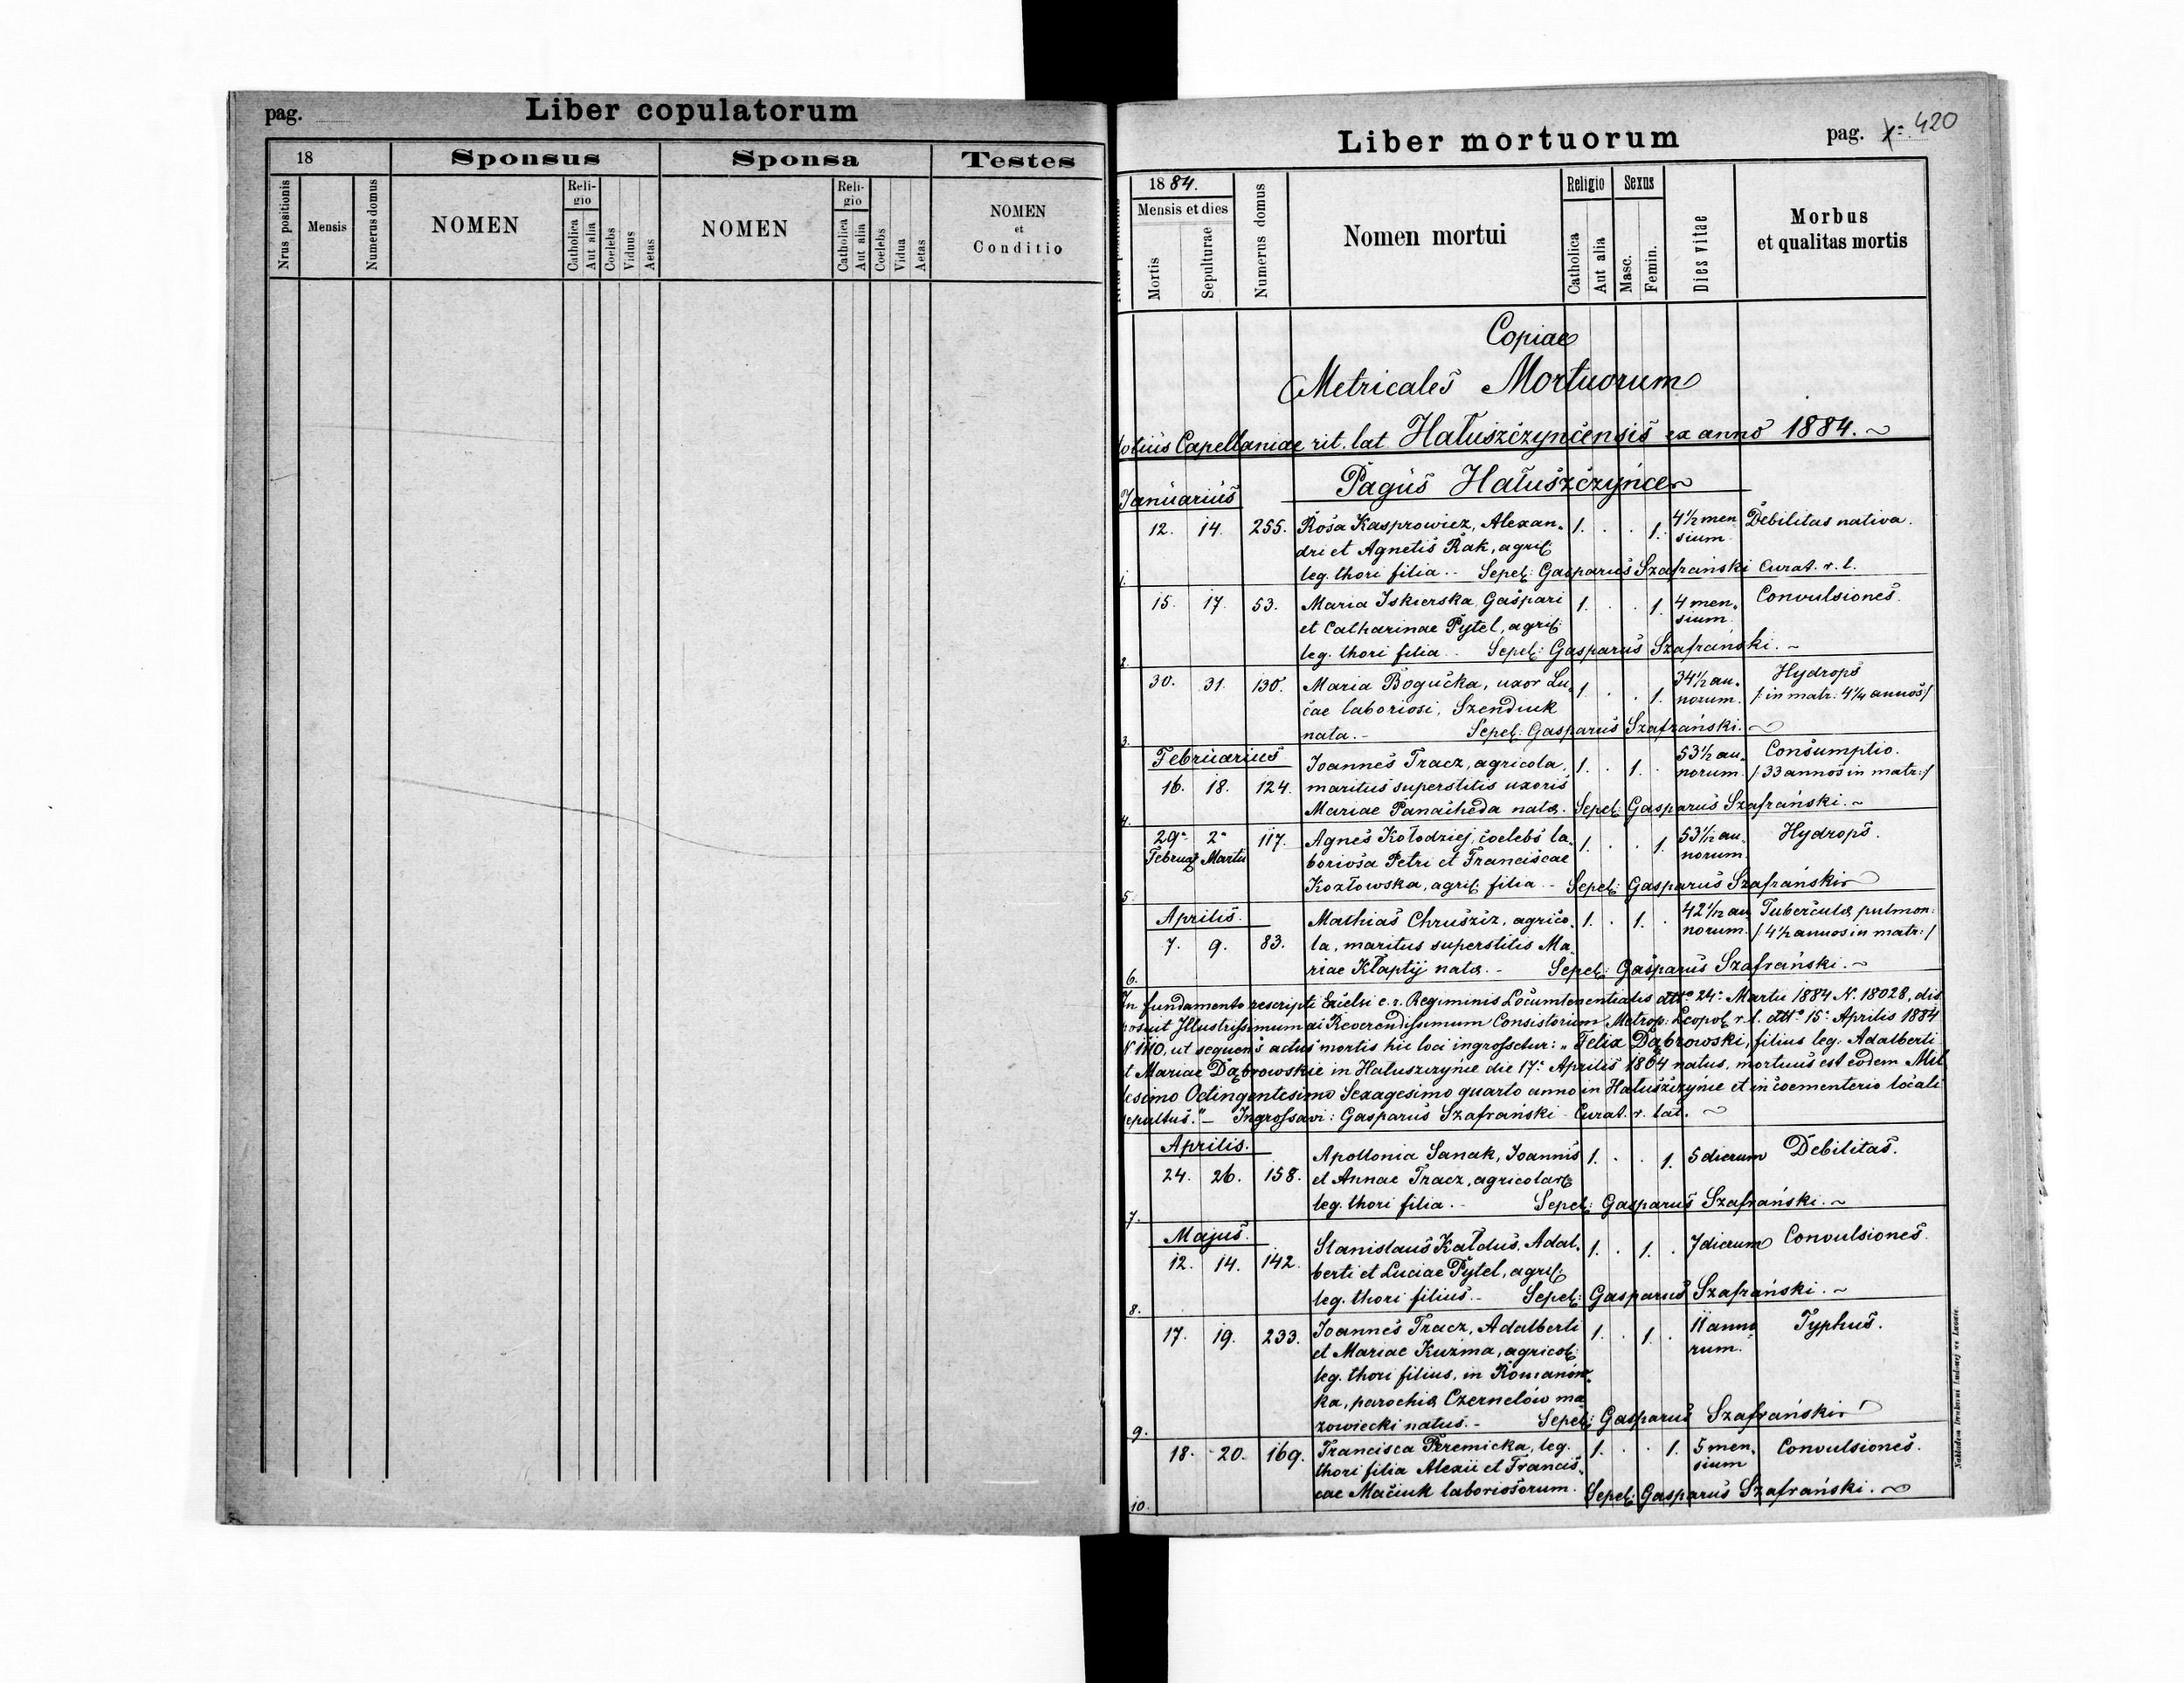 pag.
Liber copulatorum
18
Sponsus
Sponsa
Testes
Nrus positionis
Mensis
Numerus domus
NOMEN
Reli-
gio
Catholica
Aut alia
Coelebs
Viduus
Aetas
NOMEN
Reli-
gio
Catholica
Aut alia
Coelebs
Vidua
Aetas
NOMEN
et
Conditio
Liber mortuorum
pag. 420
1884.
Mensis et dies
Mortis
Sepulturae
Numerus domus
Nomen mortui
Religio
Catholica
Aut alia
Sexus
Masc.
Femin.
Dies vitae
Morbus
et qualitas mortis
Copiae
Metricales Mortuorum
Capellaniae rit. lat. Hałuszczyncensis ex anno 1884.
Pagus Hałuszczyńce
Januarius
12. 14. 255. Rosa Kasprowicz, Alexan- 1. . . 1. 4½ men Debilitas nativa.
dri et Agnetis Rak, agril: sium
1. leg. thori filia.- Sepel: Gasparus Szafrański Curat. r. l.
15. 17. 53. Maria Iskierska, Gaspari 1. . . 1. 4 men- Convulsiones.
et Catharinae Pytel, agril: sium.
2. leg. thori filia.- Sepel: Gasparus Szafrański.
30. 31. 130. Maria Bogucka, uxor Lu- 1. . . 1. 34½ an- Hydrops
cae laboriosi, Szendiuk norum. /: in matr: 4¼ annos/
3. nata.- Sepel: Gasparus Szafrański.
Februarius Joannes Tracz, agricola, 1. . 1. . 53½ an- Consumptio.
16. 18. 124. maritus superstitis uxoris norum. /: 33 annos in matr:/
4. Mariae natae. Sepel: Gasparus Szafrański.
29a 2a 117. Agnes Kołodziej, coelebs la- 1. . . 1. 53½ an Hydrops.
Martii boriosa Petri et Franciscae norum.
5. Kozłowska, agril: filia.- Sepel: Gasparus Szafrański
Aprilis. Mathias Chruszcz, agrico- 1. . 1. . 42 1/12 an Tubercula pulmon:
7. 9. 83. la, maritus superstitis Ma norum. /: 4½ annos in matr:/
6. riae Kłaptij natae.- Sepel: Gasparus Szafrański.
In fundamento rescripti Excelsi c. r. Regiminis Locumtenentialis ddto 24a Martii 1884 N. 18028, dis
posuit Illustrissimum ac Reverendissimum Consistorium Metrop: Leopol r. l. ddto 15a Aprilis 1884
N. 1110, ut sequens actus mortis hic loci ingrossetur: „Felix Dąbrowski, filius leg: Adalberti
et Mariae Dąbrowskie in Hałuszczyńce die 17a Aprilis 1864 natus, mortuus est eodem Mil
lesimo Octingentesimo Sexagesimo quarto anno in Hałuszczyńce et in coementerio locali
sepultus."- Ingrossavi: Gasparus Szafrański Curat. r. lat.
Aprilis. Apollonia Sanak, Joannis 1. . . 1. 5 dierum Debilitas.
24. 26. 158. et Annae Tracz, agricolar:
7. leg. thori filia.- Sepel: Gasparus Szafrański.
Majus. Stanislaus Kałdus, Adal- 1. . 1. . 7 dierum Convulsiones.
12. 14. 142. berti et Luciae Pytel, agril:
8. leg. thori filius.- Sepel: Gasparus Szafrański.
17. 19. 233. Joannes Tracz, Adalberti 1. . 1. . 11 anno Typhus.
et Mariae Kuzma, agricol: rum.
leg. thori filius, in Romanów-
ka, parochia Czernelów ma
9. zowiecki natus.- Sepel: Gasparus Szafrański
18. 20. 169. Francisca Peremicka, leg. 1. . . 1. 5 men- Convulsiones.
thori filia Alexii et Francis- sium
10. cae Maciuk laboriosorum. Sepel: Gasparus Szafrański.
Nakładem Drukarni Ludowej we Lwowie.